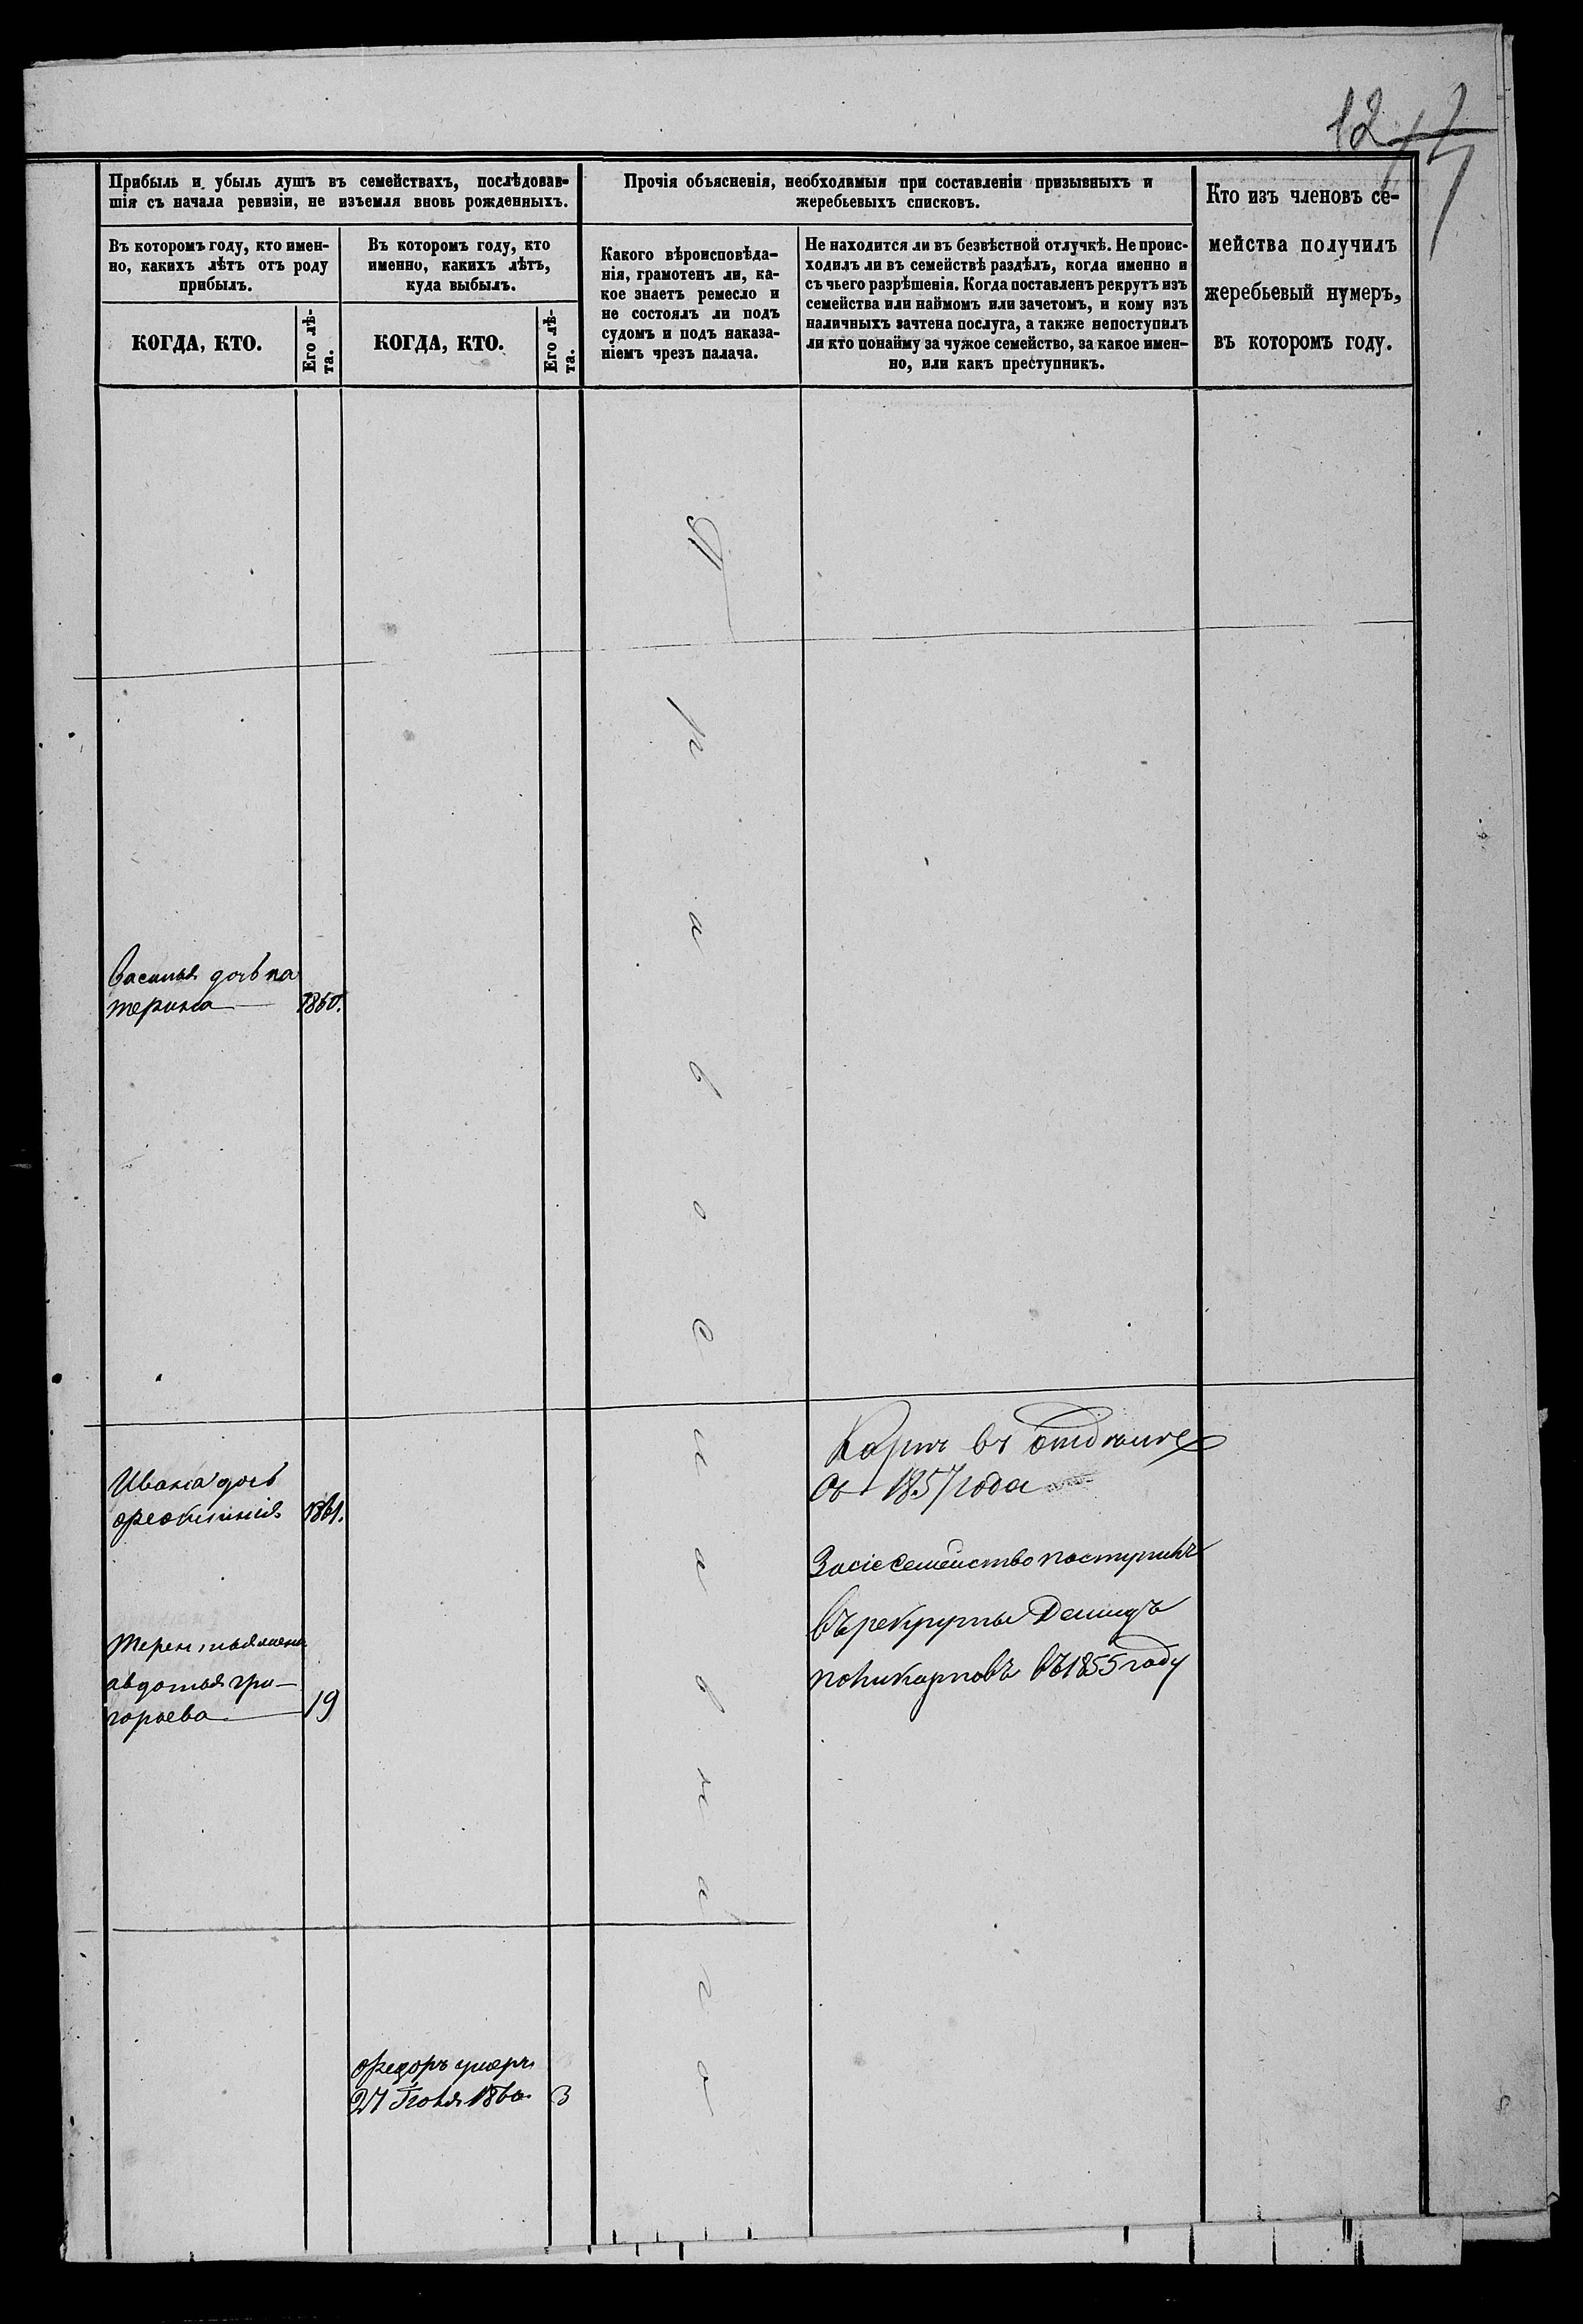 12
Прибыль и убыль душъ въ семействахъ, послѣдовав-
шія съ начала ревизіи, не изъемля вновь рожденныхъ.
Въ которомъ году, кто имен-
но, какихъ лѣтъ отъ роду
прибылъ.
КОГДА, КТО.
Его лѣ-
та.
Въ которомъ году, кто
именно, какихъ лѣтъ,
куда выбылъ.
КОГДА, КТО.
Его лѣ-
та.
Прочія объясненія, необходимыя при составленіи призывныхъ и
жеребьевыхъ списковъ.
Какого вѣроисповѣда-
нія, грамотенъ ли, ка-
кое знаетъ ремесло и
не состоялъ ли подъ
судомъ и подъ наказа-
ніемъ чрезъ палача.
Не находится ли въ безвѣстной отлучкѣ. Не проис-
ходилъ ли въ семействѣ раздѣлъ, когда именно и
съ чьего разрѣшенія. Когда поставленъ рекрутъ изъ
семейства или наймомъ или зачетомъ, и кому изъ
наличныхъ зачтена послуга, а также непоступилъ
ли кто понайму за чужое семейство, за какое имен-
но, или какъ преступникъ.
Кто изъ членовъ се-
мейства получилъ
жеребьевый нумеръ,
въ которомъ году.
Василья дочь ка
терина 1860.
Ивана дочь
1861.
Терентья жена
авдотья гри-
горьева 19
Федоръ умеръ
27 Іюня 1860 3
П
р
а
в
о
с
л
а
в
н
а
г
о
Карпъ въ
съ 1857 года
За сіе Семейство поступилъ
въ рекруты Демидъ
поликарповъ въ 1855 году